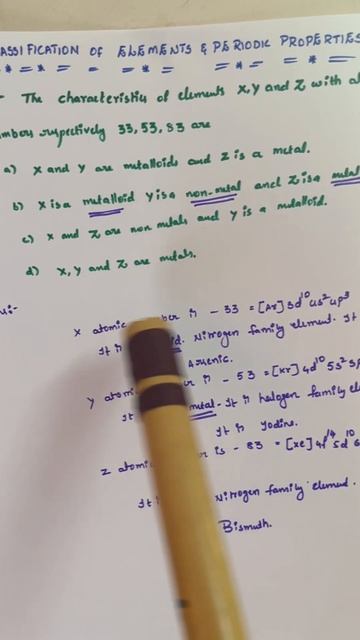 ASSIFICATION OF ELEMENTS & PERIODIC PROPERTIES
The characteristics of elements X, Y and Z with at
mbers respectively 33, 53, 83 are
a) X and Y are metalloids and Z is a metal.
b) X is a metalloid Y is a non-metal and Z is a metal
c) X and Z are non metals and Y is a metalloid.
d) X, Y and Z are metals.
X atomic ber is - 33 = [Ar] 3d¹⁰ 4s² 4p³
It is Nitrogen family element. It
Arsenic.
Y atom is - 53 = [Kr] 4d¹⁰ 5s² 5p
It metal. It is halogen family el
It is Iodine.
Z atomi is - 83 = [Xe] 4f¹⁴ 5d¹⁰ 6s
It Nitrogen family element.
Bismuth.